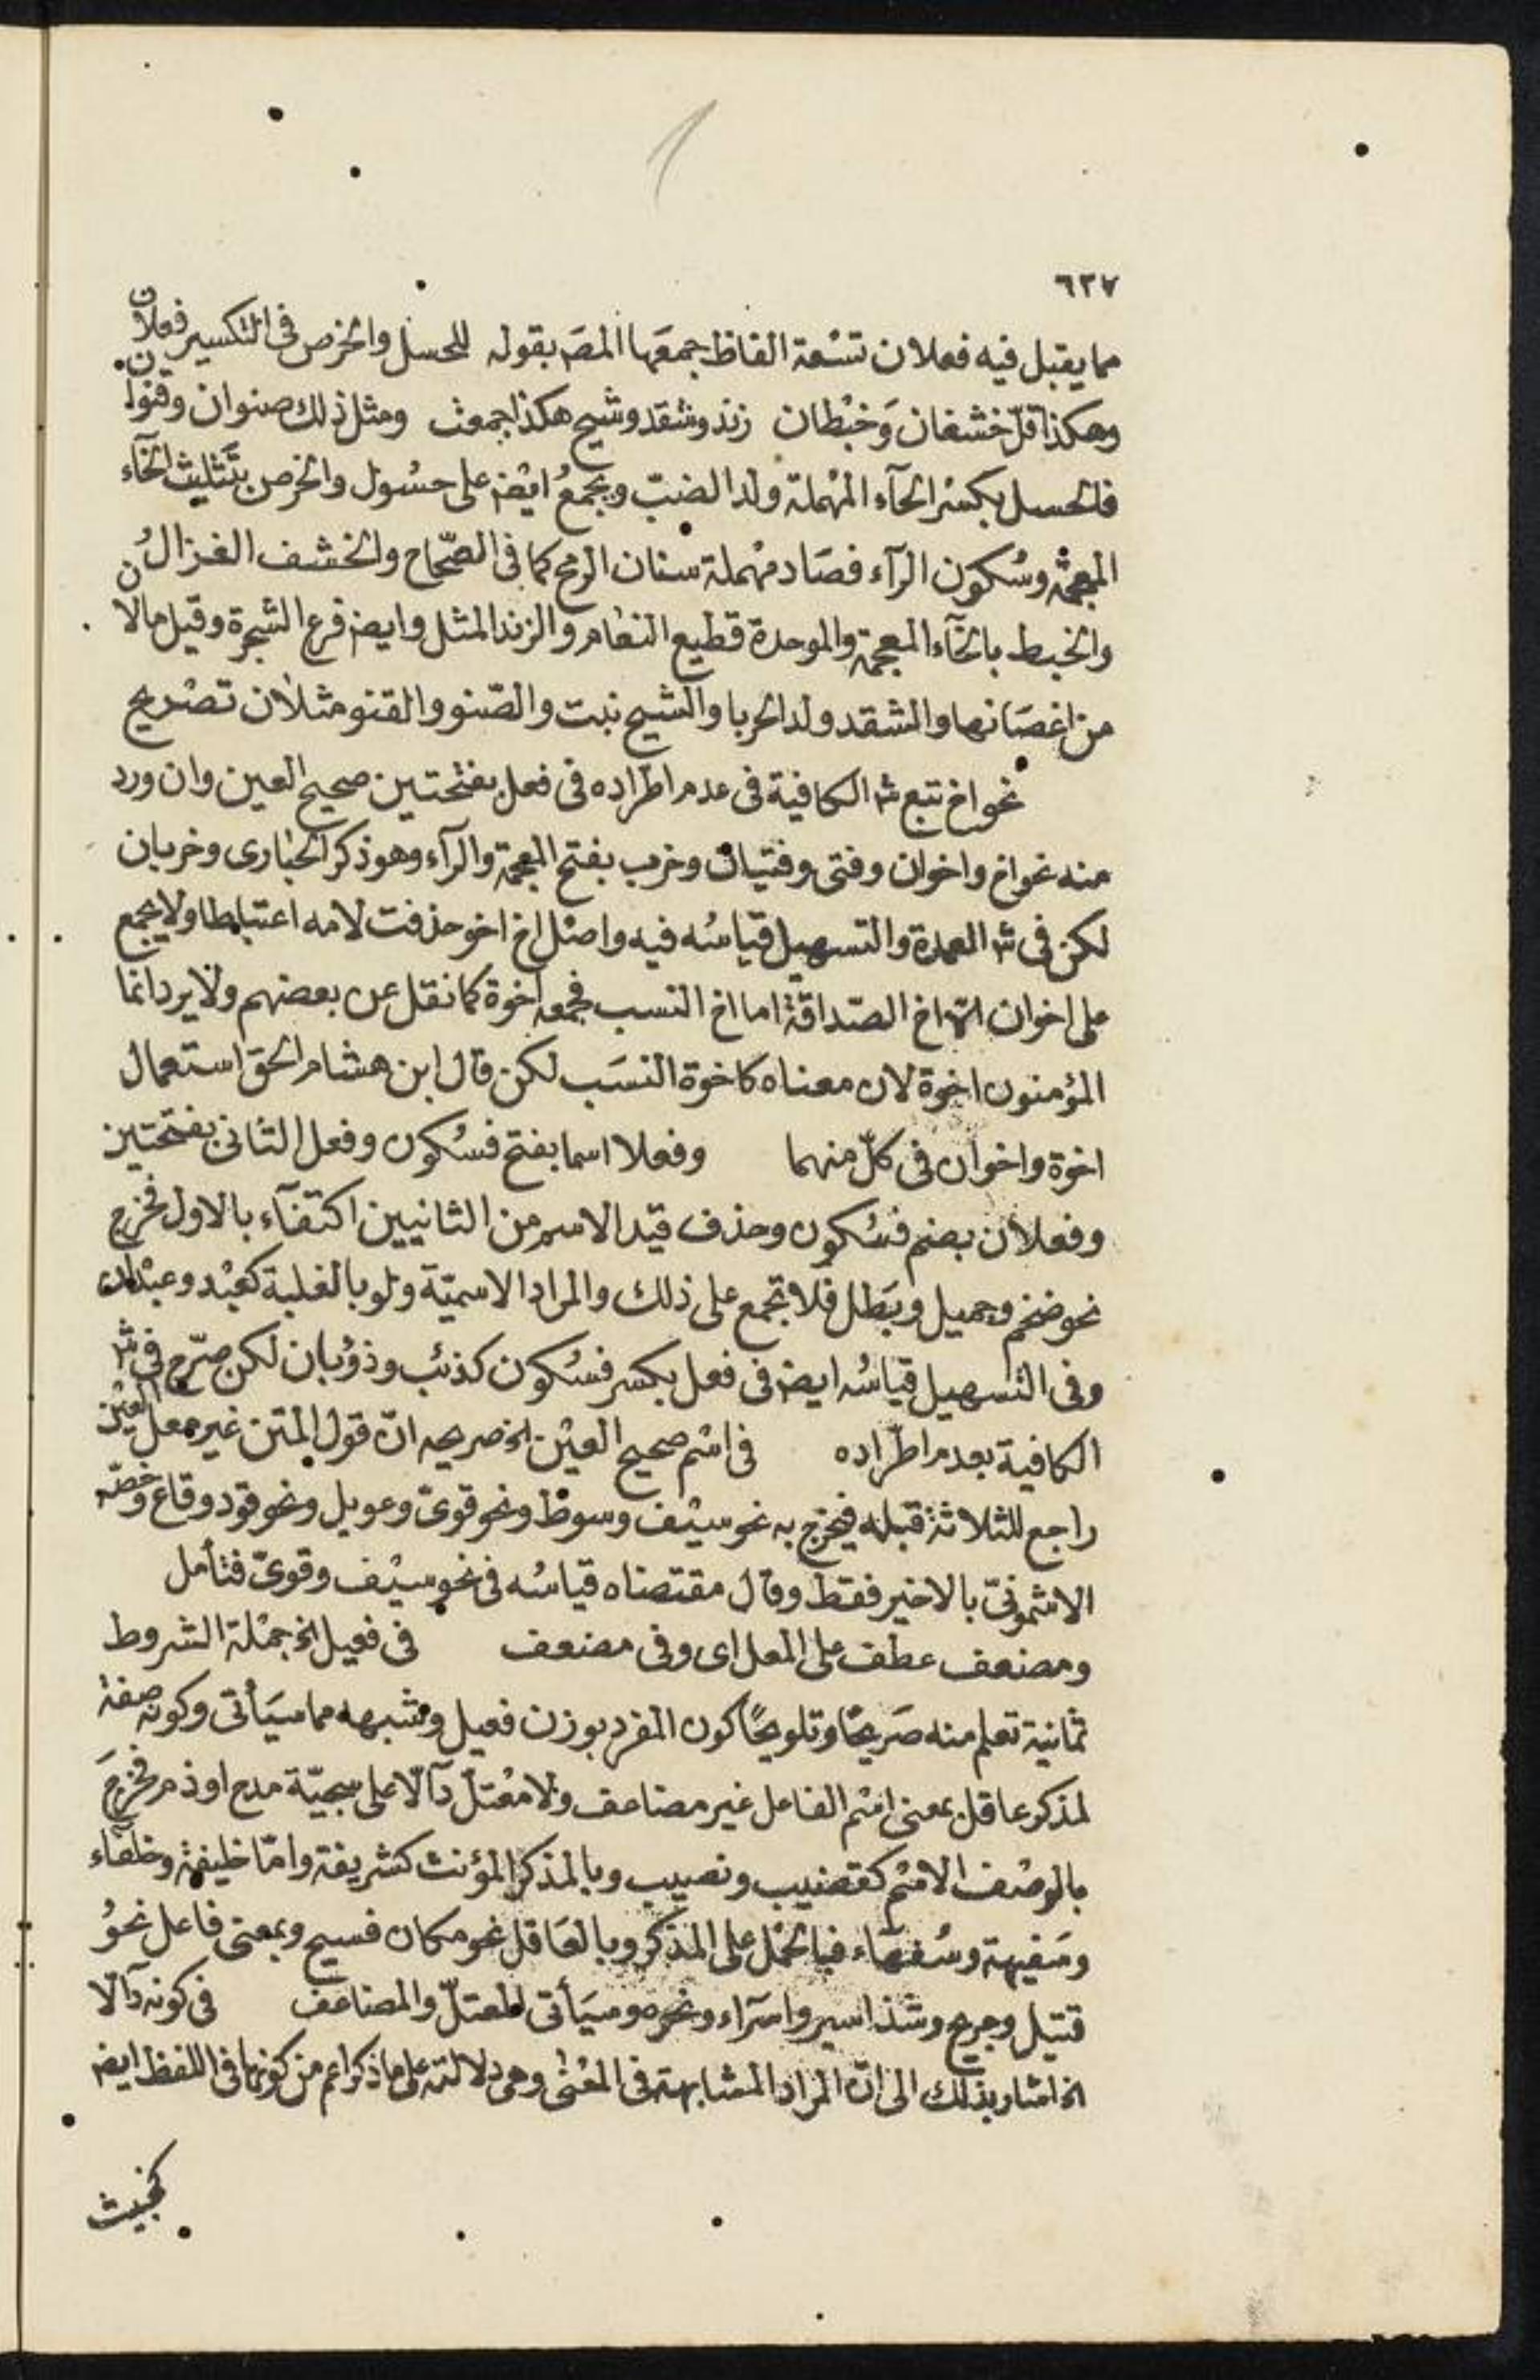 ٦٣٧
مما يقبل فيه فعلان تسْعة الفاظ جمعَها المصَ بقوله للحسل والخرص فى التكسير فعلان
وهكذا قلّ خشفان وَخبْطان زند وشقد وشيح هكذا جمعت ومثل ذلك صنوان وقنوان
فالحسل بكسْر الحآء المهْملة ولد الضبّ ويجمعُ ايضْ على حسُول والخرص بتَثليث الخآء
المعجمة وسُكون الرآء فصَاد مهْملة سنان الرمح كما فى الصّحاح والخشف الغزالُ
والخبط بالخآء المعجمة والموحدة قطيع النعام والزند المثل وايضْ فرع الشجرة وقيل مالان
من اغصَانها والشقد ولد الحربا والشيح نبت والصّنو والقنو مثلان تصْريح
نحو اخ تبع شْ الكافية فى عدم اطراده فى فعل بفتْحتين صحيح العين وان ورد
منه نحو اخ واخوان وفتى وفتيان وخرب بفتح المعجمة والرآء وهو ذكر الحبارى وخربان
لكن فى شْ العمدة والتسهيل قياسُه فيه واصْل اخ اخو حذفت لامه اعتباطا ولا يجمع
على اخوان الا اخ الصّداقة اما اخ النسب فجمعه اخوة كما نقل عن بعضهم ولا يرد انما
المؤمنون اخوة لان معناه كاخوة النسَب لكن قال ابن هشام الحق استعمال
اخوة واخوان فى كلّ منهما وفعلا اسما بفتح فسُكون وفعل الثانى بفتحتين
وفعلان بضم فسُكون وحذف قيْد الاسم من الثانيين اكتفآء بالاول فخرج
نحو ضخم وجميل وبَطل فلا تجمع على ذلك والمراد الاسميّة ولو بالغلبة كعبْد وعبْدان
وفى التسهيل قياسُه ايضْ فى فعل بكسر فسُكون كذئب وذؤبان لكن صرّح فى شْ
الكافية بعدم اطّراده فى اسْم صحيح العيْن الخ صريحه انّ قول المتن غير معل العيْن
راجع للثلاثة قبله فيخرج به نحو سيْف وسوط ونحو قوىّ وعويل ونحو قود وقاع وخصّه
الاشمونىّ بالاخير فقط وقال مقتضاه قياسُه فى نحو سيْف وقوىّ فتأمل
ومضعف عطف على المعل اى وفى مضعف فى فعيل الخ جمْلة الشروط
ثمانية تعلم منه صَريحًا وتلويحًا كون المفرد بوزن فعيل ومشبهه مما سيَأتى وكونه صفة
لمذكر عاقل بمعنى اسْم الفاعل غير مضاعف ولا معْتلّ دآلّا على سجيّة مدح او ذم فخرجَ
بالوصْف الاسْم كقضيب ونصيب وبالمذكر المؤنث كشريفة وامّا خليفة وخلفاء
وسَفيهة وسُفهَاء فبالحمْل على المذكر وبالعَاقل نحو مكان فسيح وبمعنى فاعل نحوُ
قتيل وجريح وشذ اسير واسَرآء ونحوه وسيَأتى المعتلّ والمضاعف فى كونه دآلّا
الخ اشار بذلك الى انّ المراد المشابهة فى المعْنى وهى دلالته على ما ذكر اعم من كونها فى اللفظ ايضْ
كخبيث